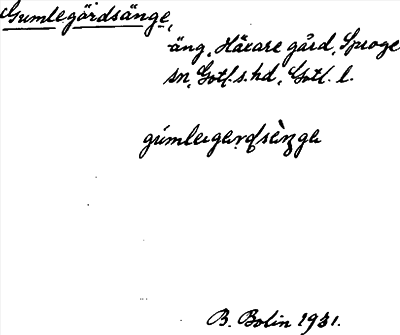 Gumlegärdsänge,
äng, Häkare gård, Sproge
sn, Gotl. s. hd, Gotl. l.
gúmlegardsèŋge
B. Bolin 1931.